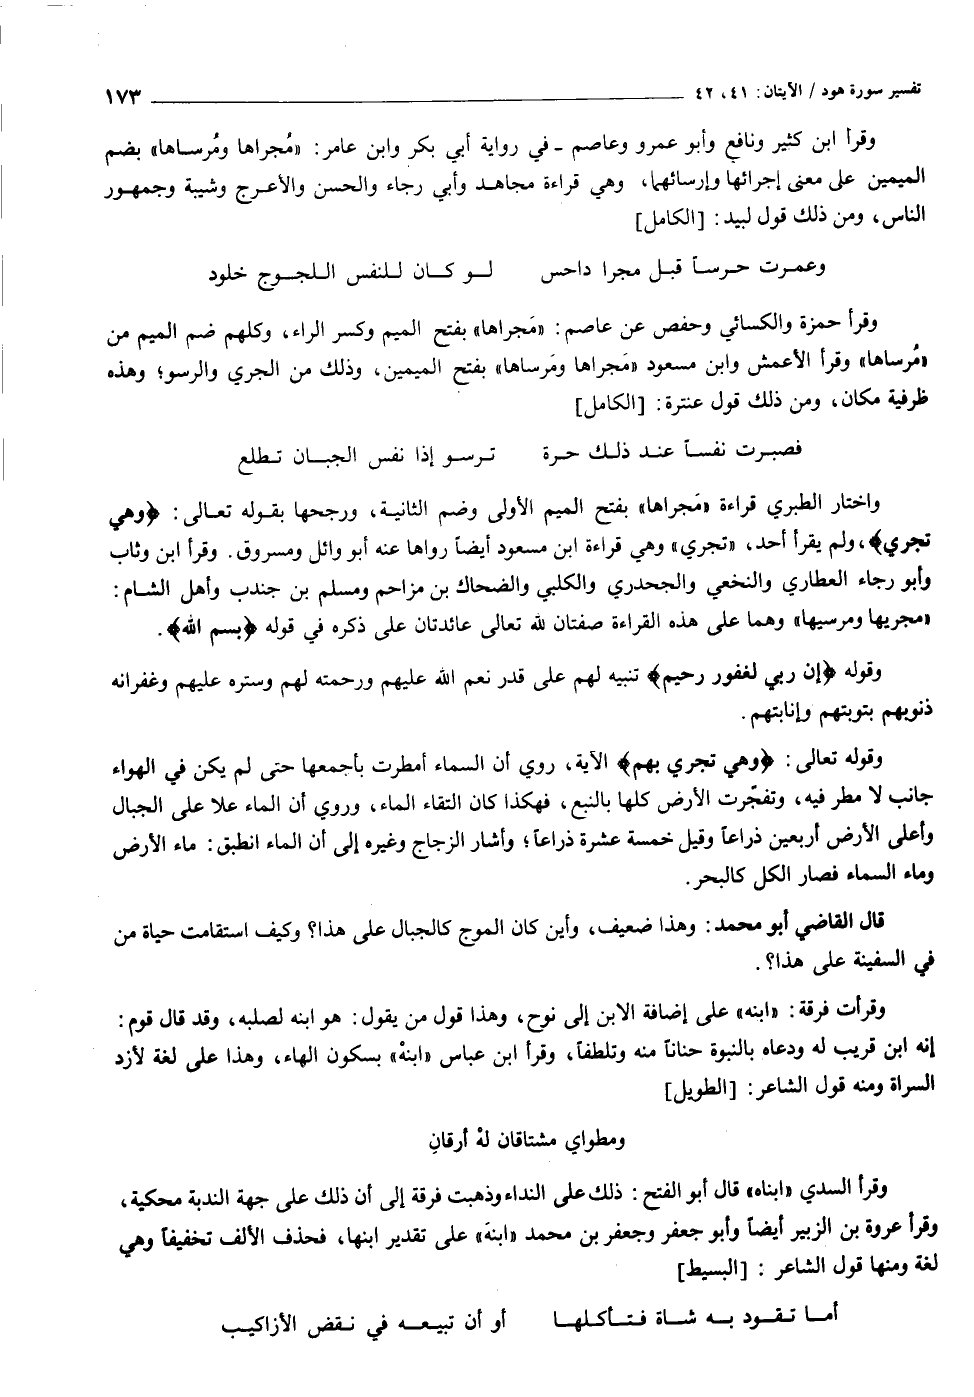 تفسير سورة هود / الآيتان: ٤١، ٤٢ ١٧٣
وقرأ ابن كثير ونافع وأبو عمرو وعاصم ـ في رواية أبي بكر وابن عامر: «مُجراها ومُرساها» بضم
الميمين على معنى إجرائها وإرسائها، وهي قراءة مجاهد وأبي رجاء والحسن والأعرج وشيبة وجمهور
الناس، ومن ذلك قول لبيد: [الكامل]
وعمرت حرساً قبل مجرا داحس لو كان للنفس اللجوج خلود
وقرأ حمزة والكسائي وحفص عن عاصم: «مَجراها» بفتح الميم وكسر الراء، وكلهم ضم الميم من
«مُرساها» وقرأ الأعمش وابن مسعود «مَجراها ومَرساها» بفتح الميمين، وذلك من الجري والرسو؛ وهذه
ظرفية مكان، ومن ذلك قول عنترة: [الكامل]
فصبرت نفساً عند ذلك حرة ترسو إذا نفس الجبان تطلع
واختار الطبري قراءة «مَجراها» بفتح الميم الأولى وضم الثانية، ورجحها بقوله تعالى: ﴿وهي
تجري﴾، ولم يقرأ أحد، «تجري» وهي قراءة ابن مسعود أيضاً رواها عنه أبو وائل ومسروق. وقرأ ابن وثاب
وأبو رجاء العطاري والنخعي والجحدري والكلبي والضحاك بن مزاحم ومسلم بن جندب وأهل الشام:
«مجريها ومرسيها» وهما على هذه القراءة صفتان لله تعالى عائدتان على ذكره في قوله ﴿بسم الله﴾.
وقوله ﴿إن ربي لغفور رحيم﴾ تنبيه لهم على قدر نعم الله عليهم ورحمته لهم وستره عليهم وغفرانه
ذنوبهم بتوبتهم وإنابتهم.
وقوله تعالى: ﴿وهي تجري بهم﴾ الآية، روي أن السماء أمطرت بأجمعها حتى لم يكن في الهواء
جانب لا مطر فيه، وتفجّرت الأرض كلها بالنبع، فهكذا كان التقاء الماء، وروي أن الماء علا على الجبال
وأعلى الأرض أربعين ذراعاً وقيل خمسة عشرة ذراعاً؛ وأشار الزجاج وغيره إلى أن الماء انطبق: ماء الأرض
وماء السماء فصار الكل كالبحر.
قال القاضي أبو محمد: وهذا ضعيف، وأين كان الموج كالجبال على هذا؟ وكيف استقامت حياة من
في السفينة على هذا؟.
وقرأت فرقة: «ابنه» على إضافة الابن إلى نوح، وهذا قول من يقول: هو ابنه لصلبه، وقد قال قوم:
إنه ابن قريب له ودعاه بالنبوة حناناً منه وتلطفاً، وقرأ ابن عباس «ابنهْ» بسكون الهاء، وهذا على لغة لأزد
السراة ومنه قول الشاعر: [الطويل]
ومطواي مشتاقان لهْ أرقانِ
وقرأ السدي «ابناه» قال أبو الفتح: ذلك على النداء وذهبت فرقة إلى أن ذلك على جهة الندبة محكية،
وقرأ عروة بن الزبير أيضاً وأبو جعفر وجعفر بن محمد «ابنهَ» على تقدير ابنها، فحذف الألف تخفيفاً وهي
لغة ومنها قول الشاعر : [البسيط]
أما تقود به شاة فتأكلها أو أن تبيعه في نقض الأزاكيب